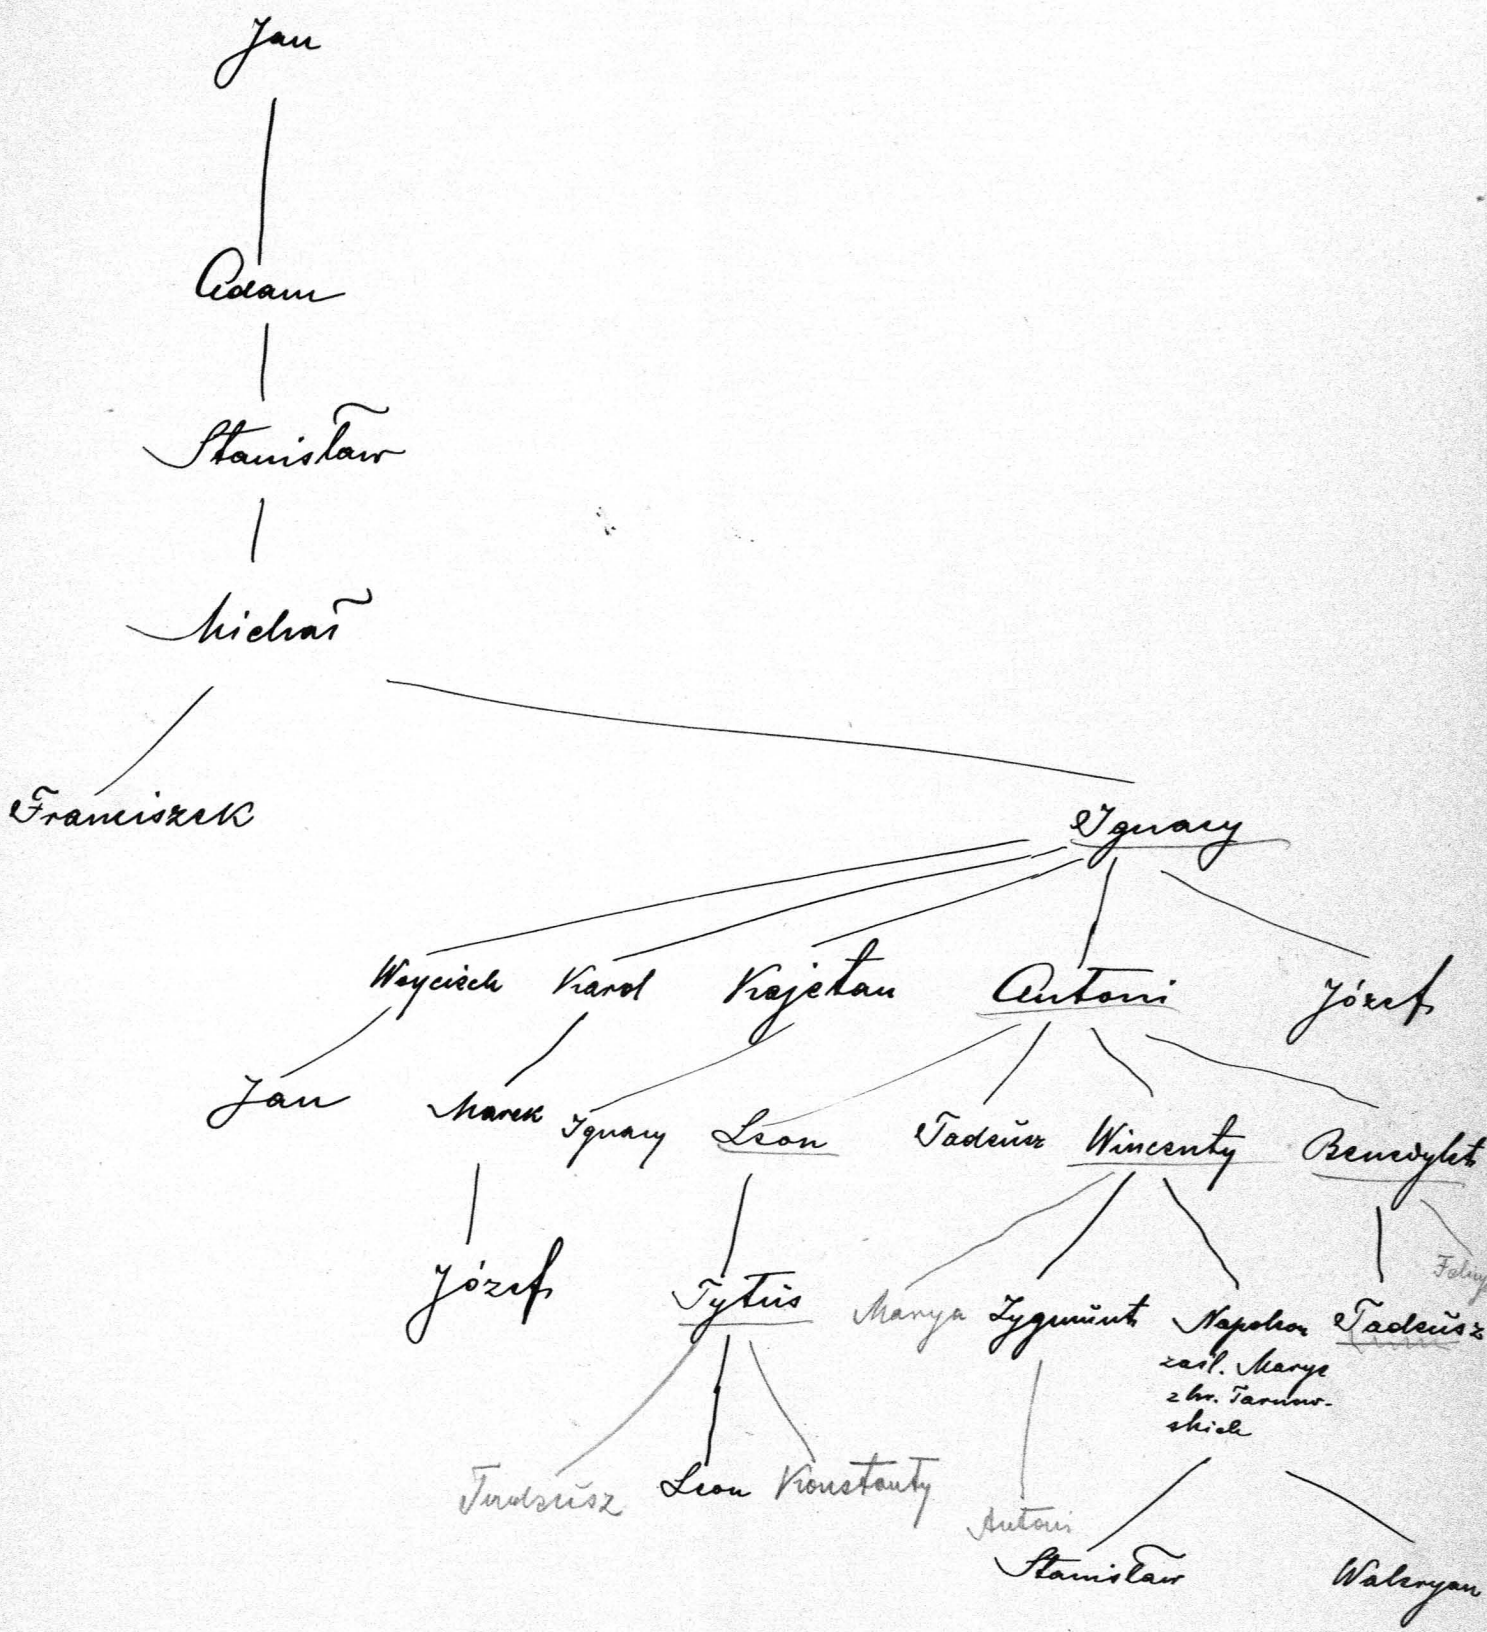 Jan
Adam
Stanisław
Michał
Franciszek
Ignacy
Woyciech Karol Kajetan Antoni Józef
Jan Marek Ignacy Leon Tadeusz Wincenty Benedykt
Józef Tytus Marya Zygmunt Napoleon Tadeusz
zaśl. Marye
z hr. Tarnow-
skich
Tadeusz Leon Konstanty
Antoni
Stanisław Waleryan